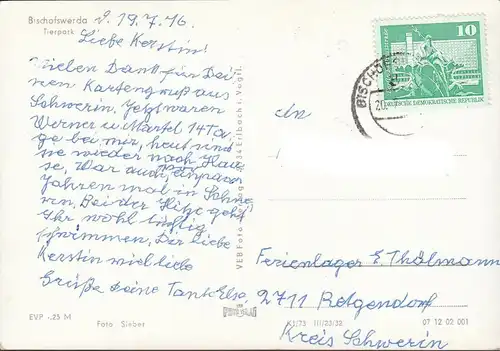 Bischofswerda d. 19.7.76.
Tierpark
Liebe Kerstin!
Vielen Dank für Dei
nen Kartengruß aus
Schwerin. Jetzt waren
Werner u. Martel 14 Ta
ge bei mir, heut sind
sie wieder nach Hau
se. War auch
Jahren mal in Schwe
rin. Bei der Hitze geht
Ihr wohl tüchtig
schwimmen. Dir liebe
Kerstin viel liebe
Grüße Deine Tante Else
EVP -,25 M
Foto Sieber
VEB Foto-Verlag 9934 Erlbach i. Vogtl.
BISCHOFS
20.
10
DEUTSCHE DEMOKRATISCHE REPUBLIK
An
Ferienlager E. Thälmann
2711 Retgendorf
Kreis Schwerin
III/23/32
07 12 02 001